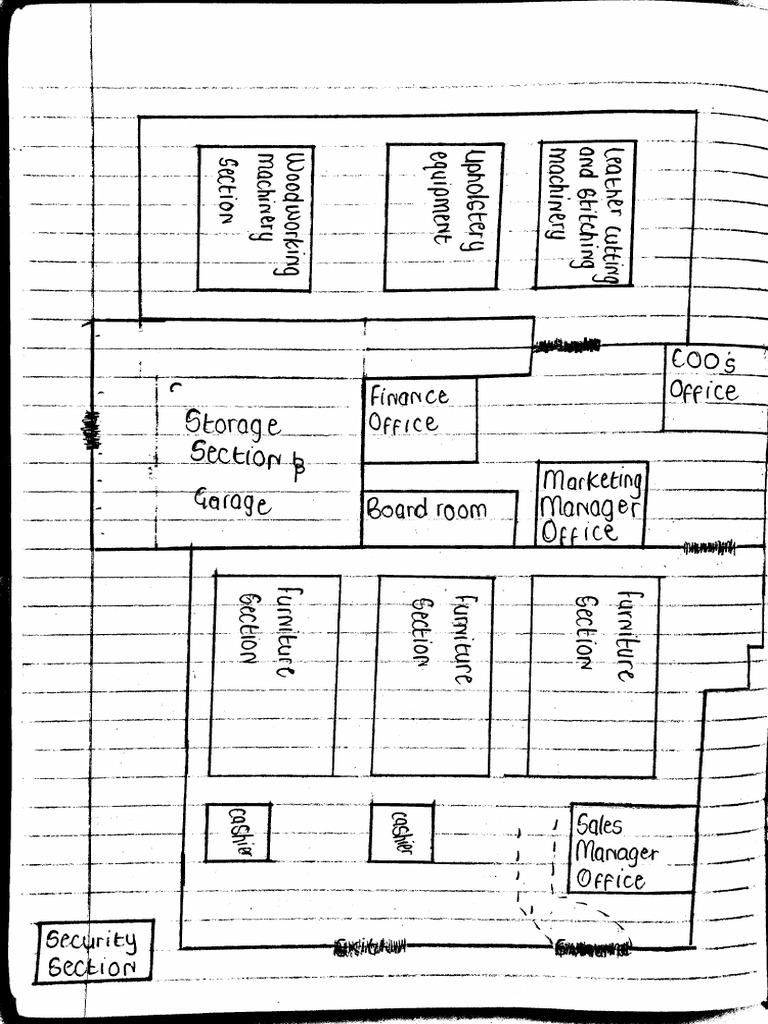 Woodworking
machinery
Section
Upholstery
equipment
Leather cutting
and stitching
machinery
COO's
Office
Finance
Office
Storage
Section &
Garage
Board room
Marketing
Manager
Office
Furniture
Section
Furniture
Section
Furniture
Section
cashier
cashier
Sales
Manager
Office
Security
Section